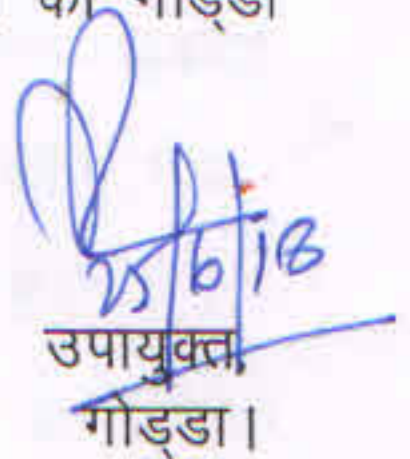 गोड्डा
25/6/18
उपायुक्त,
गोड्डा।